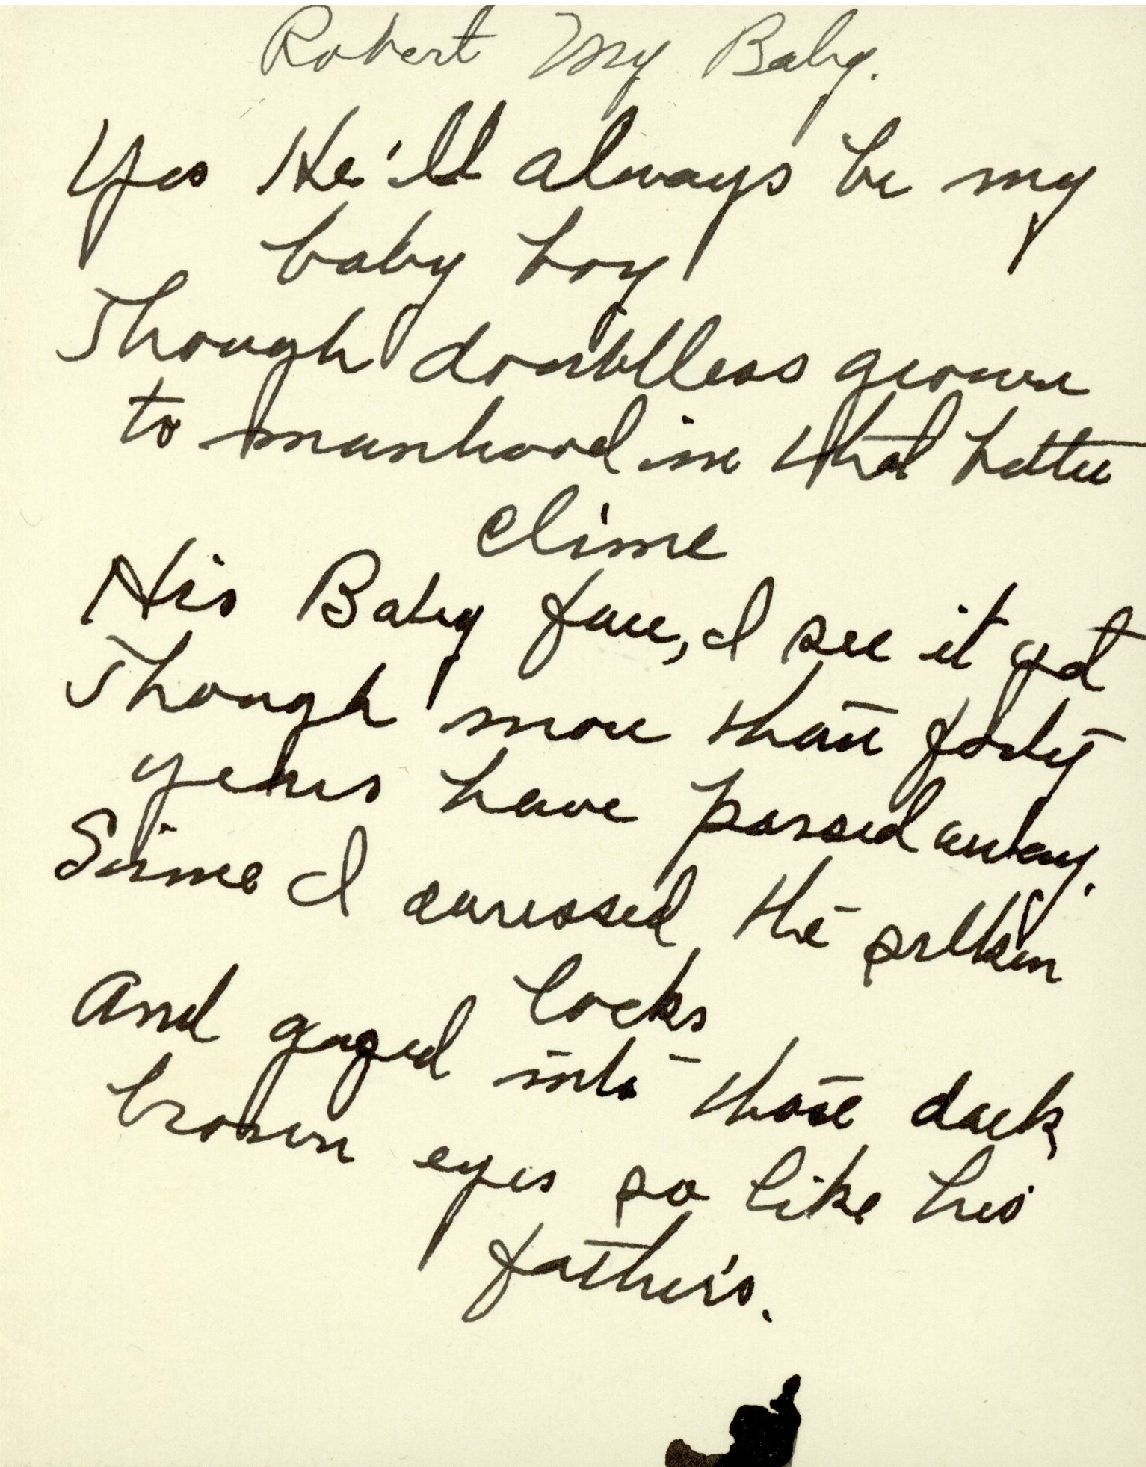 Robert My Baby.
Yes He'll always be my
baby boy
Though doubtless grown
to manhood in that better
clime
His Baby face, I see it yet
Though more than forty
years have passed away.
Since I caressed the silken
locks
And gazed into those dark
brown eyes so like his
father's.